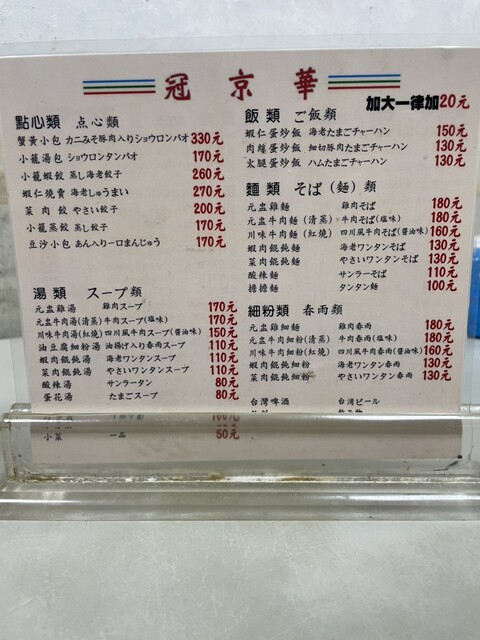 冠京華
加大一律加20元
點心類 点心類
蟹黃小包 カニみそ豚肉入りショウロンパオ 330元
小籠湯包 ショウロンタンパオ 170元
小籠蝦餃 蒸し海老餃子 260元
蝦仁燒賣 海老しゅうまい 270元
菜肉餃 やさい餃子 200元
小籠蒸餃 蒸し餃子 170元
豆沙小包 あん入り一口まんじゅう 170元
湯類 スープ類
元盅雞湯 雞肉スープ 170元
元盅牛肉湯(清蒸) 牛肉スープ(塩味) 170元
川味牛肉湯(紅燒) 四川風牛肉スープ(醤油味) 150元
油豆腐細粉湯 油揚げ入り春雨スープ 110元
蝦肉餛飩湯 海老ワンタンスープ 110元
菜肉餛飩湯 やさいワンタンスープ 110元
酸辣湯 サンラータン 80元
蛋花湯 たまごスープ 80元
100元
小菜 一品 50元
飯類 ご飯類
蝦仁蛋炒飯 海老たまごチャーハン 150元
肉絲蛋炒飯 細切豚肉たまごチャーハン 130元
火腿蛋炒飯 ハムたまごチャーハン 130元
麵類 そば(麵)類
元盅雞麵 雞肉そば 180元
元盅牛肉麵(清蒸) 牛肉そば(塩味) 180元
川味牛肉麵(紅燒) 四川風牛肉そば(醤油味) 160元
蝦肉餛飩麵 海老ワンタンそば 130元
菜肉餛飩麵 やさいワンタンそば 130元
酸辣麵 サンラーそば 110元
擔擔麵 タンタン麵 100元
細粉類 春雨類
元盅雞細麵 雞肉春雨 180元
元盅牛肉細粉(清蒸) 牛肉春雨(塩味) 180元
川味牛肉細粉(紅燒) 四川風牛肉春雨(醤油味) 160元
蝦肉餛飩細粉 海老ワンタン春雨 130元
菜肉餛飩細粉 やさいワンタン春雨 130元
台灣啤酒 台湾ビール